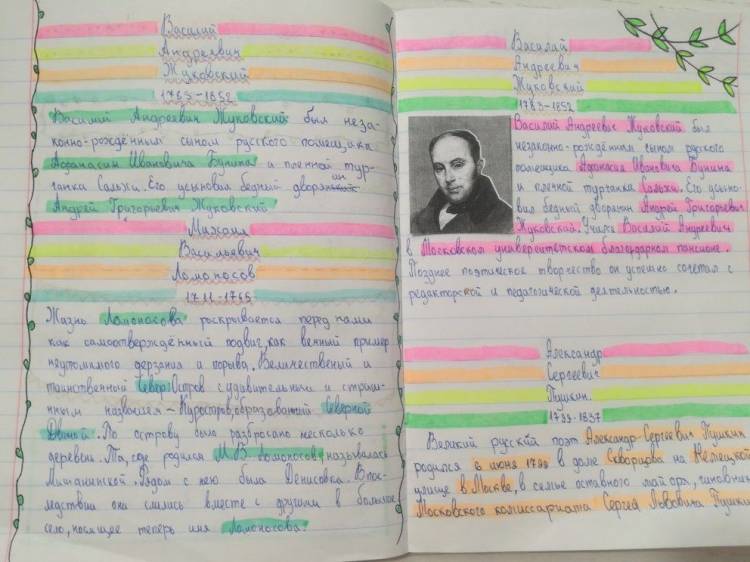 Василий
Андреевич
Жуковский
1783-1852
Василий Андреевич Жуковский был неза-
конно-рождённым сыном русского помещика
Афанасия Ивановича Бунина и пленной тур-
чанка Сальхи. Его усыновил бедный дворянин
Андрей Григорьевич Жуковский
Михаил
Васильевич
Ломоносов
1711-1765
Жизнь Ломоносова раскрывается перед нами
как самоотверженный подвиг, как вечный пример
неутомимого дерзания и порыва. Величественый и
таинственный Север. Остров с удивительным и стран-
ным названием - Куростров, образованый Северной
Двиной. По острову было разбросано несколько
деревень. Та, где родился М.В Ломоносов, называлась
Мишанинской. Рядом с нею была Денисовка. Впос-
ледствии они слились вместе с другими в большое
село, носящее теперь имя Ломоносова.
Василий
Андреевич
Жуковский
1783-1852
Василий Андреевич Жуковский был
незаконно-рождённым сыном русского
помещика Афанасия Ивановича Бунина
и пленной турчанка Сальхи. Его усыно-
вил бедный дворянин Андрей Григорьевич
Жуковский. Учился Василий Андреевич
в Московском университетском благородном пансионе.
Позднее поэтическое творчество он успешно сочетал с
редакторской и педагогической деятельностью.
Александр
Сергеевич
Пушкин.
1799-1837
Великий русский поэт Александр Сергеевич Пушкин
родился 6 июня 1799 в доме Скворцова на Немецкой
улице в Москве, в семье отставного майора, чиновник
Московского комиссариата Сергея Львовича Пушк